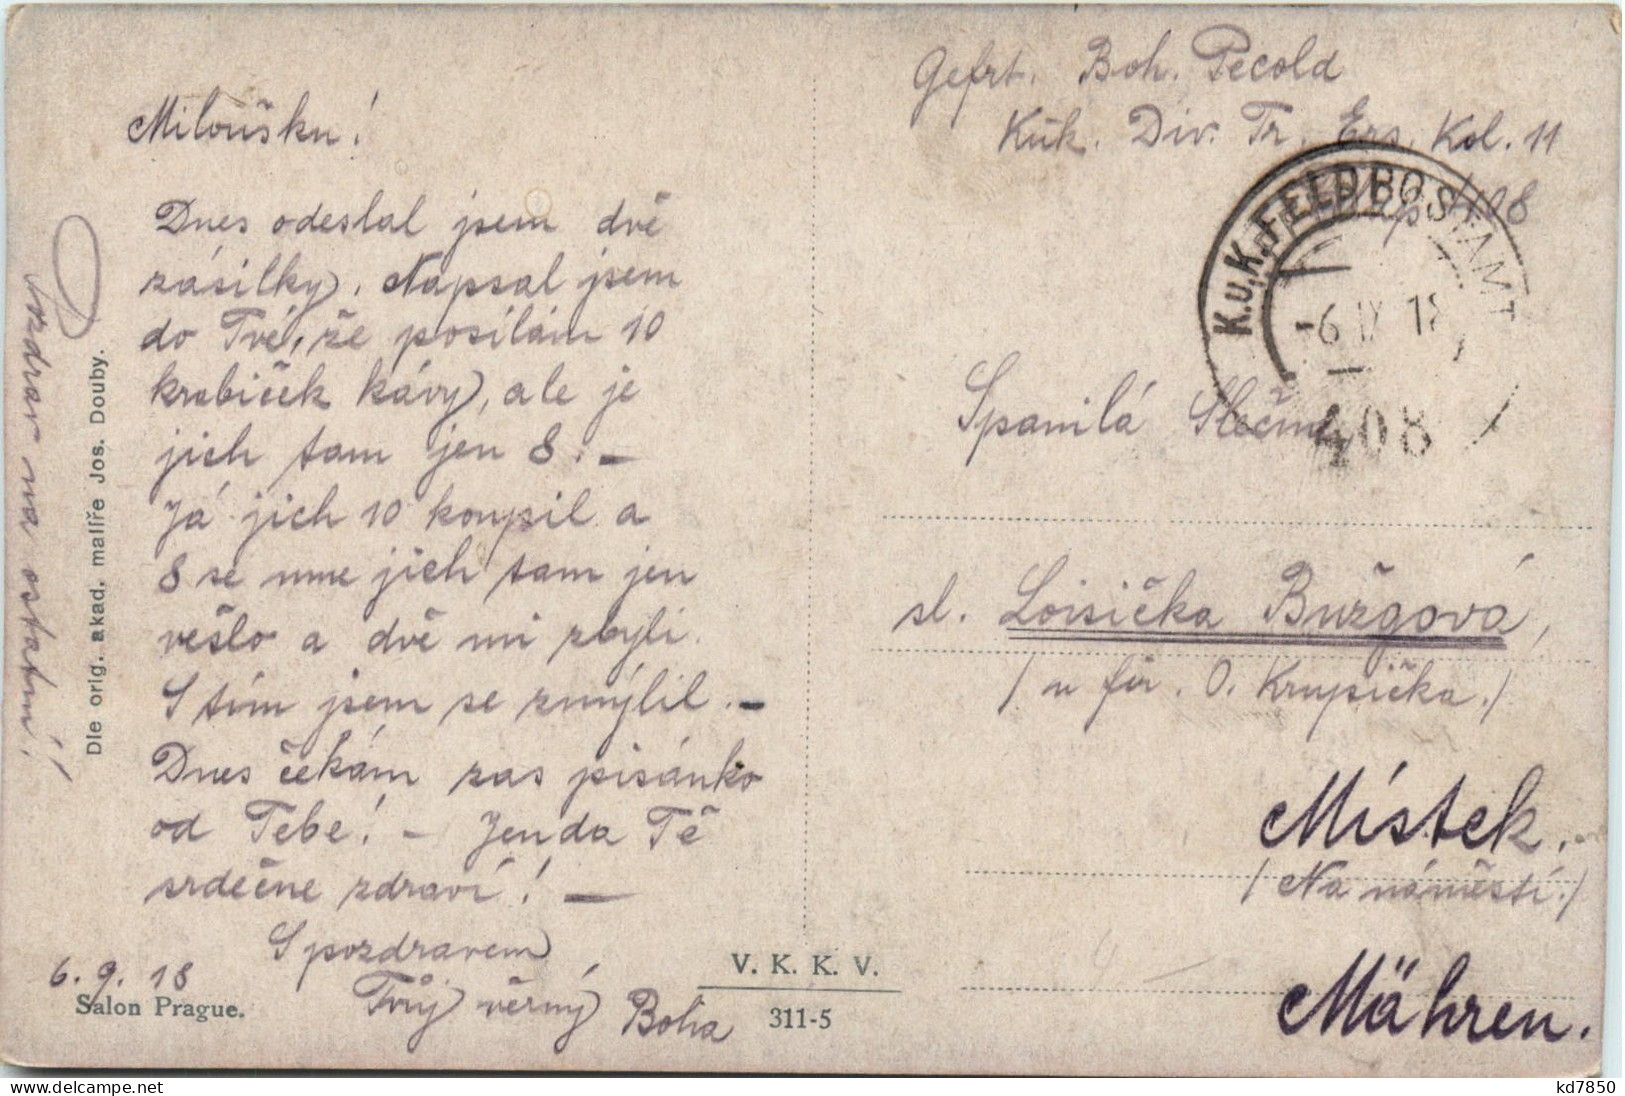 Miloušku!
Dnes odeslal jsem dvě
zásilky. Napsal jsem
do Tvé, že posílám 10
krabiček kávy, ale je
jich tam jen 8. —
Já jich 10 koupil a
8 se mně jich tam jen
vešlo a dvě mi zbyli.
S tím jsem se zmýlil. —
Dnes čekám zas písánko
od Tebe! — Jenda Tě
srdečne zdraví! —
S pozdravem
Tvůj věrný Boha
6. 9. 18
Pozdrav na ostatní!
Dle orig. akad. malíře Jos. Douby.
Salon Prague.
V. K. K. V.
311-5
Gefrt. Boh. Pecold
Kuk. Div. Tr. Ers. Kol. 11
408
K.u.K. FELDPOSTAMT
-6 IX 18
408
Spanilá Slečna
sl. Loisička Bužgová,
/ u fir. O. Krupička./
Místek.
/ Na náměstí./
Mähren.
kd7850